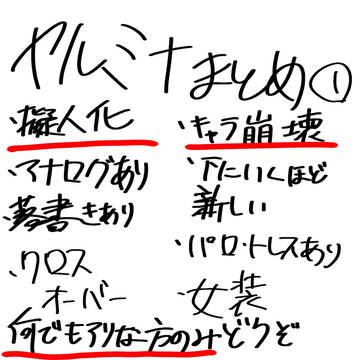 ヤルミナまとめ①
・擬人化
・アナログあり
落書きあり
・クロス
オーバー
・キャラ崩壊
・下にいくほど
新しい
・パロ・トレスあり
・女装
何でもアリな方のみどうぞ